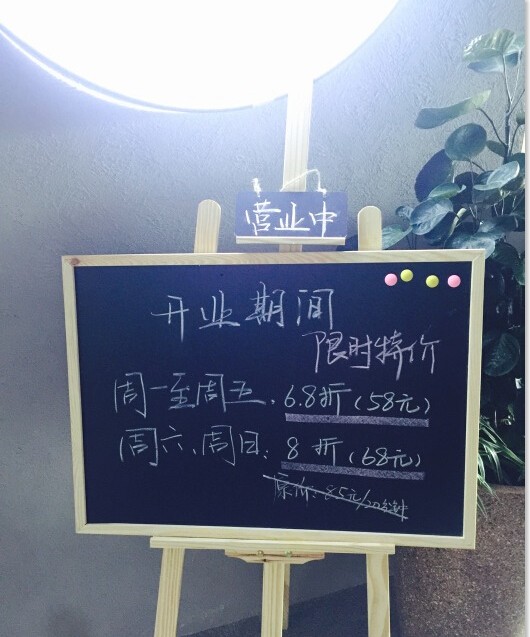 营业中
开业期间
限时特价
周一至周五，6.8折(58元)
周六、周日：8折(68元)
原价：85元/20分钟